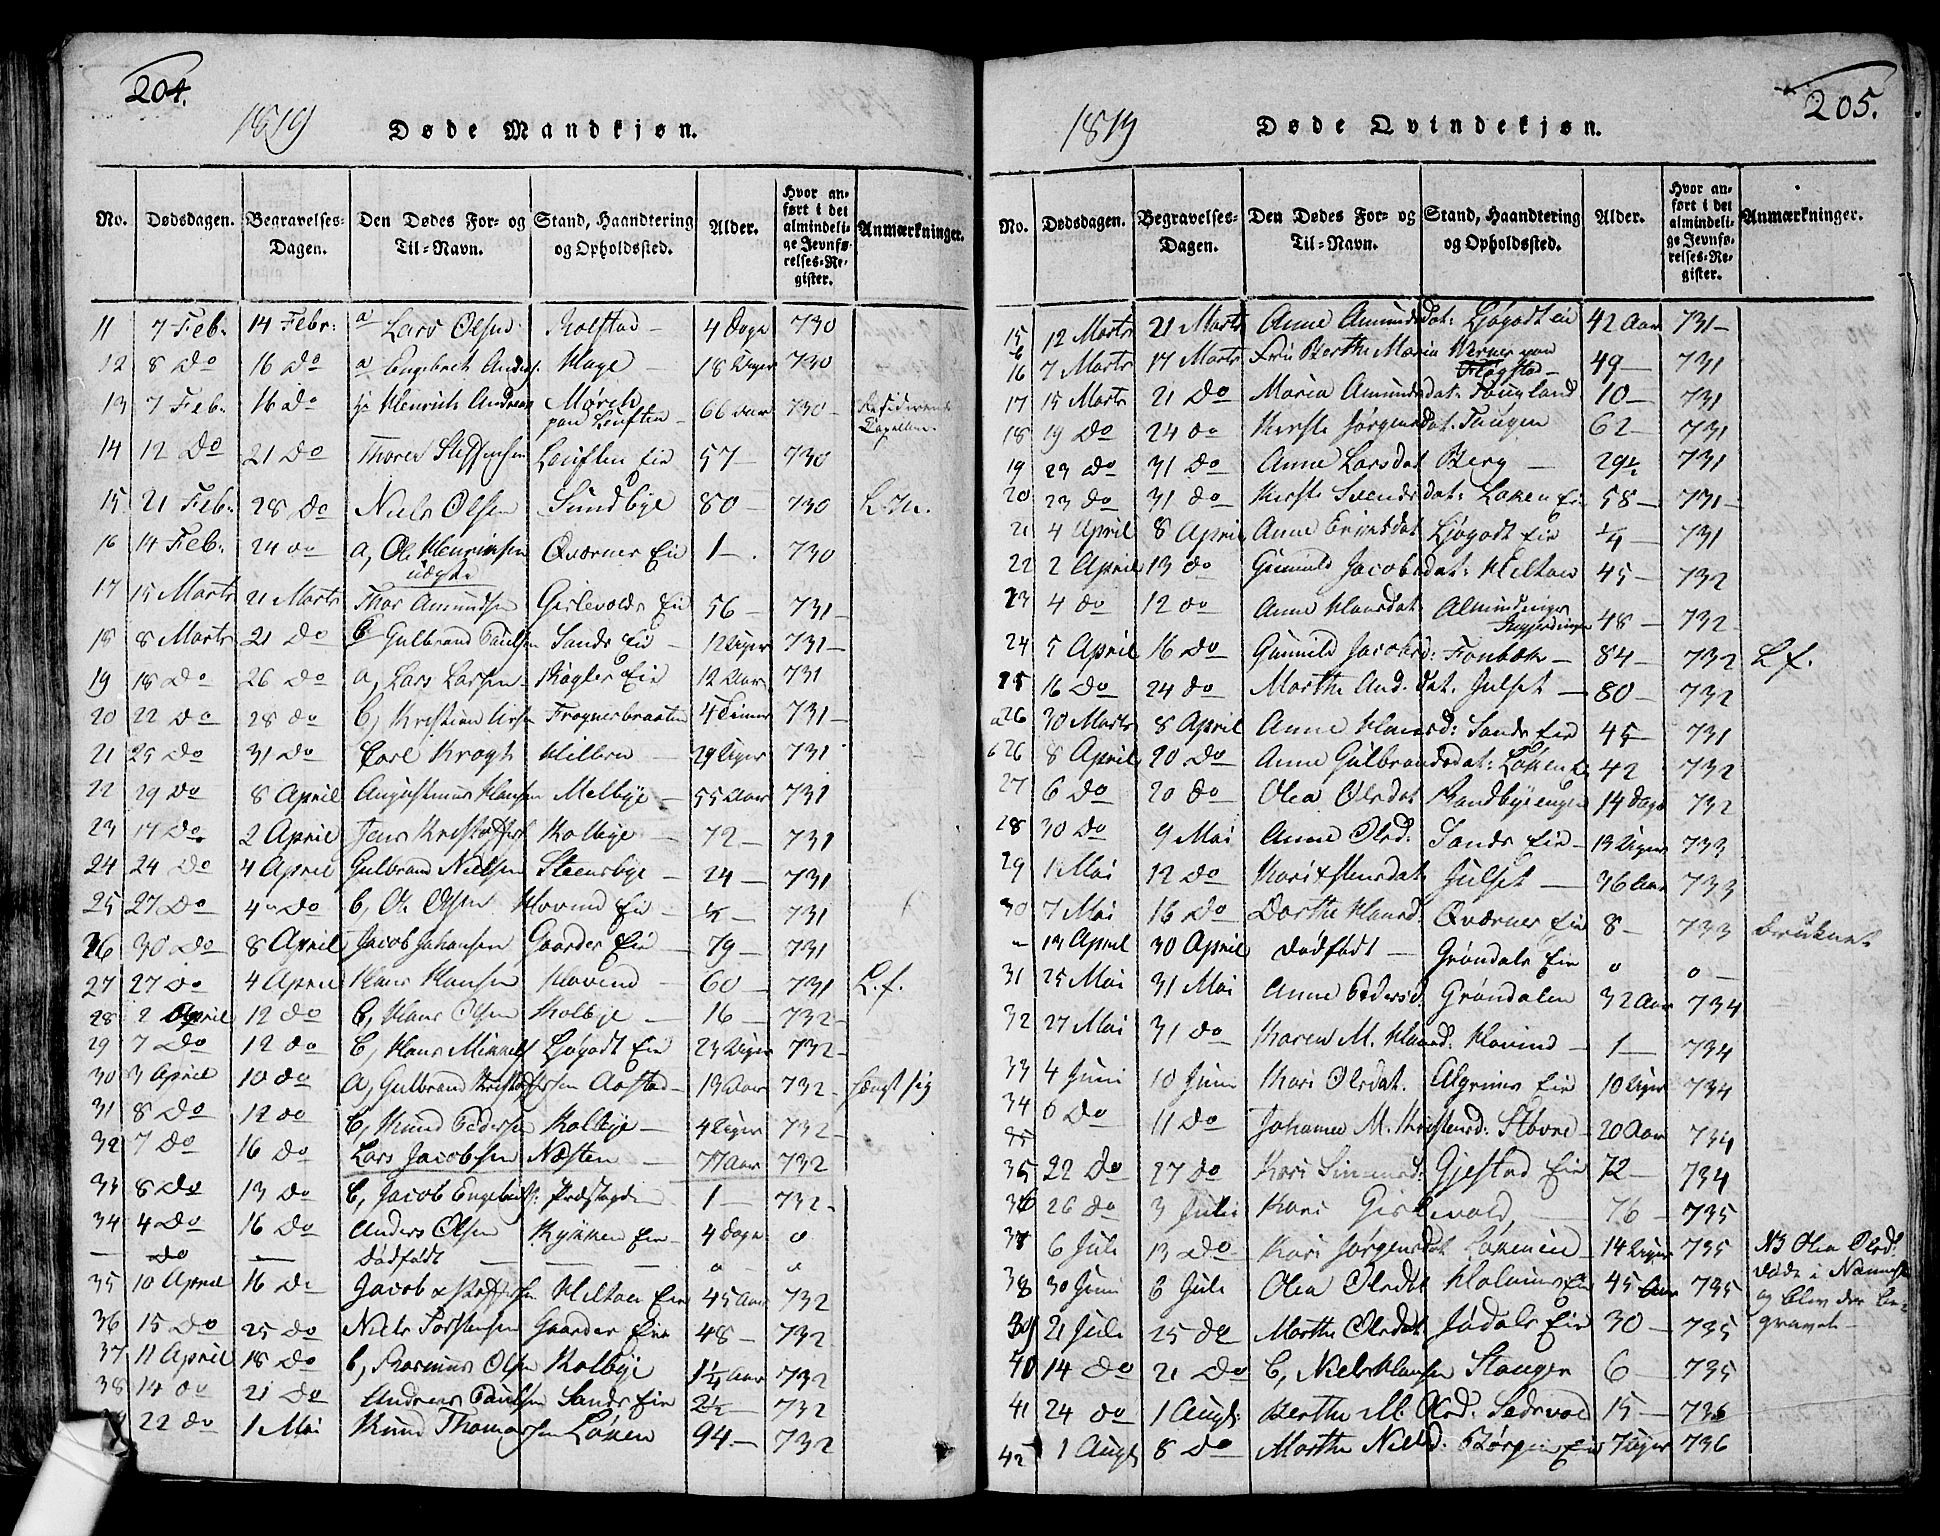 204.
1819 Døde Mandkjøn.
No. Dødsdagen. Begravelses-Dagen. Den Dødes For- og Til-Navn. Stand, Haandtering og Opholdssted. Alder. Hvor anført i det almindelige Jevnførelses-Register. Anmærkninger.
11 7 Feb: 14 Febr: a Lars Olsen Kolstad — 4 Dage 730
12 8 Do 16 Do a Engebret Anders: Hage — 18 Uger 730
13 7 Feb: 16 Do Hr Henrich Andreas Mørch 66 Aar 730 — Residerende
paa Løuften Capelan.
14 12 Do 21 Do Thorer Steffensen Løuften Eie 57 — 730
15 21 Feb: 28 Do Niels Olsen Sundbye 80 — 730 L.M.
16 14 Feb: 24 Do a, Ole Henrichsen Qværner Eie 1 — 730
uægte
17 15 Marts 21 Marts Thor Amundsen Gislevolds Eie 56 — 731 —
18 8 Marts 21 Do C Gulbrand Paulsen Sands Eie — 12 Uger 731 —
19 18 Do 26 Do a, Lars Larsen Røgler Eie 12 Aar 731
20 22 Do 28 Do C, Kristian Frognerbraaten 4 Timer 731 —
21 25 Do 31 Do Carl Krogh Hilbren — 29 Uger 731
22 29 Do 8 April Augustinus Hansen Melbye — 55 Aar 731
23 17 Do 2 April Jens Kristoffers: Kolbye — 72 — 731
24 24 Do 4 April Gulbrand Nielsen Steensbye — 24 — 731
25 27 Do 4 Do C, Ole Olsen Hovind Eie — 1/2 — 731
26 30 Do 8 April Jacob Johansen Gaarder Eie — 79 — 731
27 27 Do 4 April Hans Hansen Hovind — 60 — 731 L.f.
28 2 April 12 Do C, Hans Olsen Kolbye — 16 — 732 —
29 7 Do 12 Do C, Hans Mikkels: Ljøgodt Eie 23 Uger 732 —
30 3 April 10 Do A, Gulbrand Kristoffersen Aastad — 13 Aar 732 hængt sig
31 8 Do 12 Do C, Knud Pedersen Kolbye — 4 Uger 732 —
32 7 Do 16 Do Lars Jacobsen Næsten — 77 Aar 732
33 8 Do 13 Do C, Jacob Engebrets: 1 — 732 —
34 4 Do 16 Do Anders Olsen Rykken Eie — 4 Dage 0
— Do — Dødfødt — 0 0
35 10 April 16 Do Jacob Kristoffersen Hiltoen Eie 45 Aar 732
36 15 Do 25 Do Niels Torstensen Gaarder Eie 48 — 732
37 11 April 18 Do C, Rasmus Olsen Kolbye 1 1/4 Aar 732
38 14 Do 21 Do Andreas Paulsen Sands Eie 2 1/2 — 732
22 Do 1 Mai Knud Thomassen Løken 94 — 732
205.
1819 Døde Qvindekjøn.
No. Dødsdagen. Begravelses-Dagen. Den Dødes For- og Til-Navn. Stand, Haandtering og Opholdssted. Alder. Hvor anført i det almindelige Jevnførelses-Register. Anmærkninger.
15 12 Marts 21 Marts Anne Amundsdat: Ljøgodt Eie 42 Aar 731 —
16 7 Marts 17 Marts Frie Berthe Maria Werner paa Flogstad — 49 — 731
17 15 Marts 21 Do Maria Amundsdat: Haugland 10 — 731
18 19 Do 24 Do Kirsti Jørgensdat. Tangen 62 — 731
19 23 Do 31 Do Anne Larsdat Berg — 29 1/2 731
20 23 Do 31 Do Kirsti Svendsdat: Løken Eie 58 — 731 —
21 4 April 8 April Anne Eriksdat Ljøgodt Eie 1/4 — 731
22 2 April 13 Do Gunild Jacobsdat: Hiltoen 45 — 732
23 4 Do 12 Do Anne Hansdat Almindinger 48 — 732
24 5 April 16 Do Gunild Jacobsd: Fonbæk — 84 — 732 L.f.
25 16 Do 24 Do Marthe And.dat. Julset — 80 — 732
a26 30 Marts 8 April Anne Hansd: Sands Eie 45 731
b26 8 April 20 Do Anne Gulbrandsdat: Løken E. 42 732
27 6 Do 20 Do Olea Olsdat Randbyeengen 14 Dage 732
28 30 Do 9 Mai Anne Olsd: Sands Eie — 13 Uger 733
29 1 Mai 12 Do Kari Jensdat. Julset — 36 Aar 733
30 7 Mai 16 Do Dorthe Hansd: Qværner Eie 8 — 733 Druknet
" 13 April 30 April dødfødt — Grøndals Eie 0 0 —
31 25 Mai 31 Mai Anne Pedersd. Grøndalen 32 Aar 734
32 27 Mai 31 Do Karen M. Hansd: Hovind — 1 — 734
33 4 Juni 10 Juni Kari Olsdat. Algrims Eie 10 Uger 734
34 6 Do 11 Do Johanne M. Kristensd: Stovne — 20 Aar 734
35 22 Do 27 Do Kari Simensd. Gjestad Eie 72 — 734
36 26 Do 3 Juli Kari Gislevold — 76 — 735
37 6 Juli 13 Do Kari Jørgensdat Løken Eie — 14 Uger 735 NB Olea Olsd:
38 30 Juni 6 Juli Olea Olsdat Holums Eie 45 Aar 735 døde i Nannestad
39 21 Juli 25 Do Marthe Olsdat Jødals Eie 30 — 735 og blev der be-
gravet —
40 14 Do 21 Do C, Niels Hansen Stanger 6 — 735
41 24 Do 1 Augt: Berthe M. Olsd: Sedsvold 15 — 736
42 1 Augt 8 Do Marthe Nielsd: Børgen Eie 7 Uger 736